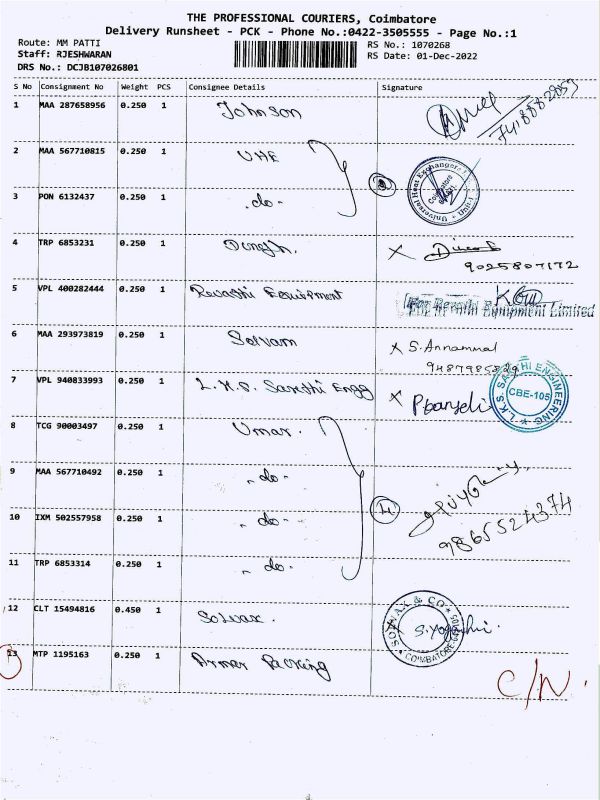 THE PROFESSIONAL COURIERS, Coimbatore
Delivery Runsheet - PCK - Phone No.:0422-3505555 - Page No.:1
Route: MM PATTI RS No.: 1070268
Staff: RJESHWARAN RS Date: 01-Dec-2022
DRS No.: DCJB107026801
S No Consignment No Weight PCS Consignee Details Signature
1 MAA 287658956 0.250 1 Johnson
2 MAA 567710815 0.250 1 UHE
Universal Heat Exchangers Coimbatore Unit-I
3 PON 6132437 0.250 1 - do -
4 TRP 6853231 0.250 1 x
9025807172
5 VPL 400282444 0.250 1 Revathi Equipment For Revathi Equipment Limited
6 MAA 293973819 0.250 1 Selvam x S. Annammal
7 VPL 940833993 0.250 1 L.K.S. Santhi Engg x
CBE-105
8 TCG 90003497 0.250 1 Umar.
9 MAA 567710492 0.250 1 - do -
10 IXM 502557958 0.250 1 - do - 9865524374
11 TRP 6853314 0.250 1 - do -
12 CLT 15494816 0.450 1 S. Yogathi.
COIMBATORE
13 MTP 1195163 0.250 1 Armar Packing
C/N.